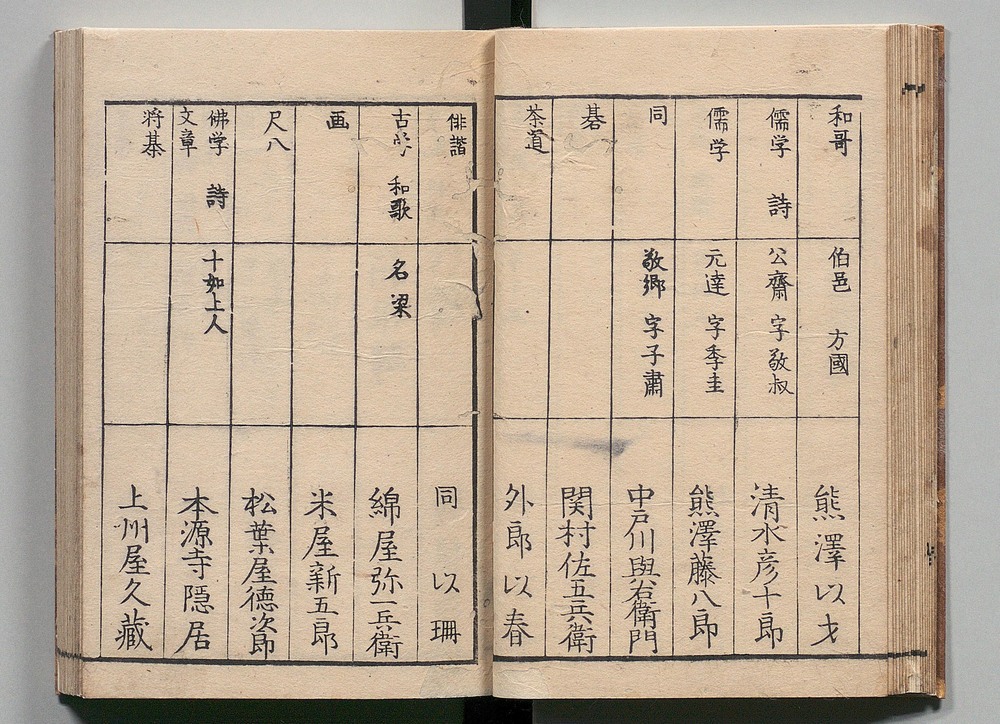 和哥 伯邑 方國 熊澤以才
儒学 詩 公齋 字敬叔 清水彦十郎
儒学 元達 字季圭 熊澤藤八郎
同 敬郷 字子肅 中戸川與右衛門
碁 関村佐五兵衛
茶道 外郎以春
俳諧 同以珊
古学 和歌 名梁 綿屋弥一兵衛
画 米屋新五郎
尺八 松葉屋徳次郎
佛学 詩 文章 十如上人 本源寺隠居
将棊 上州屋久藏